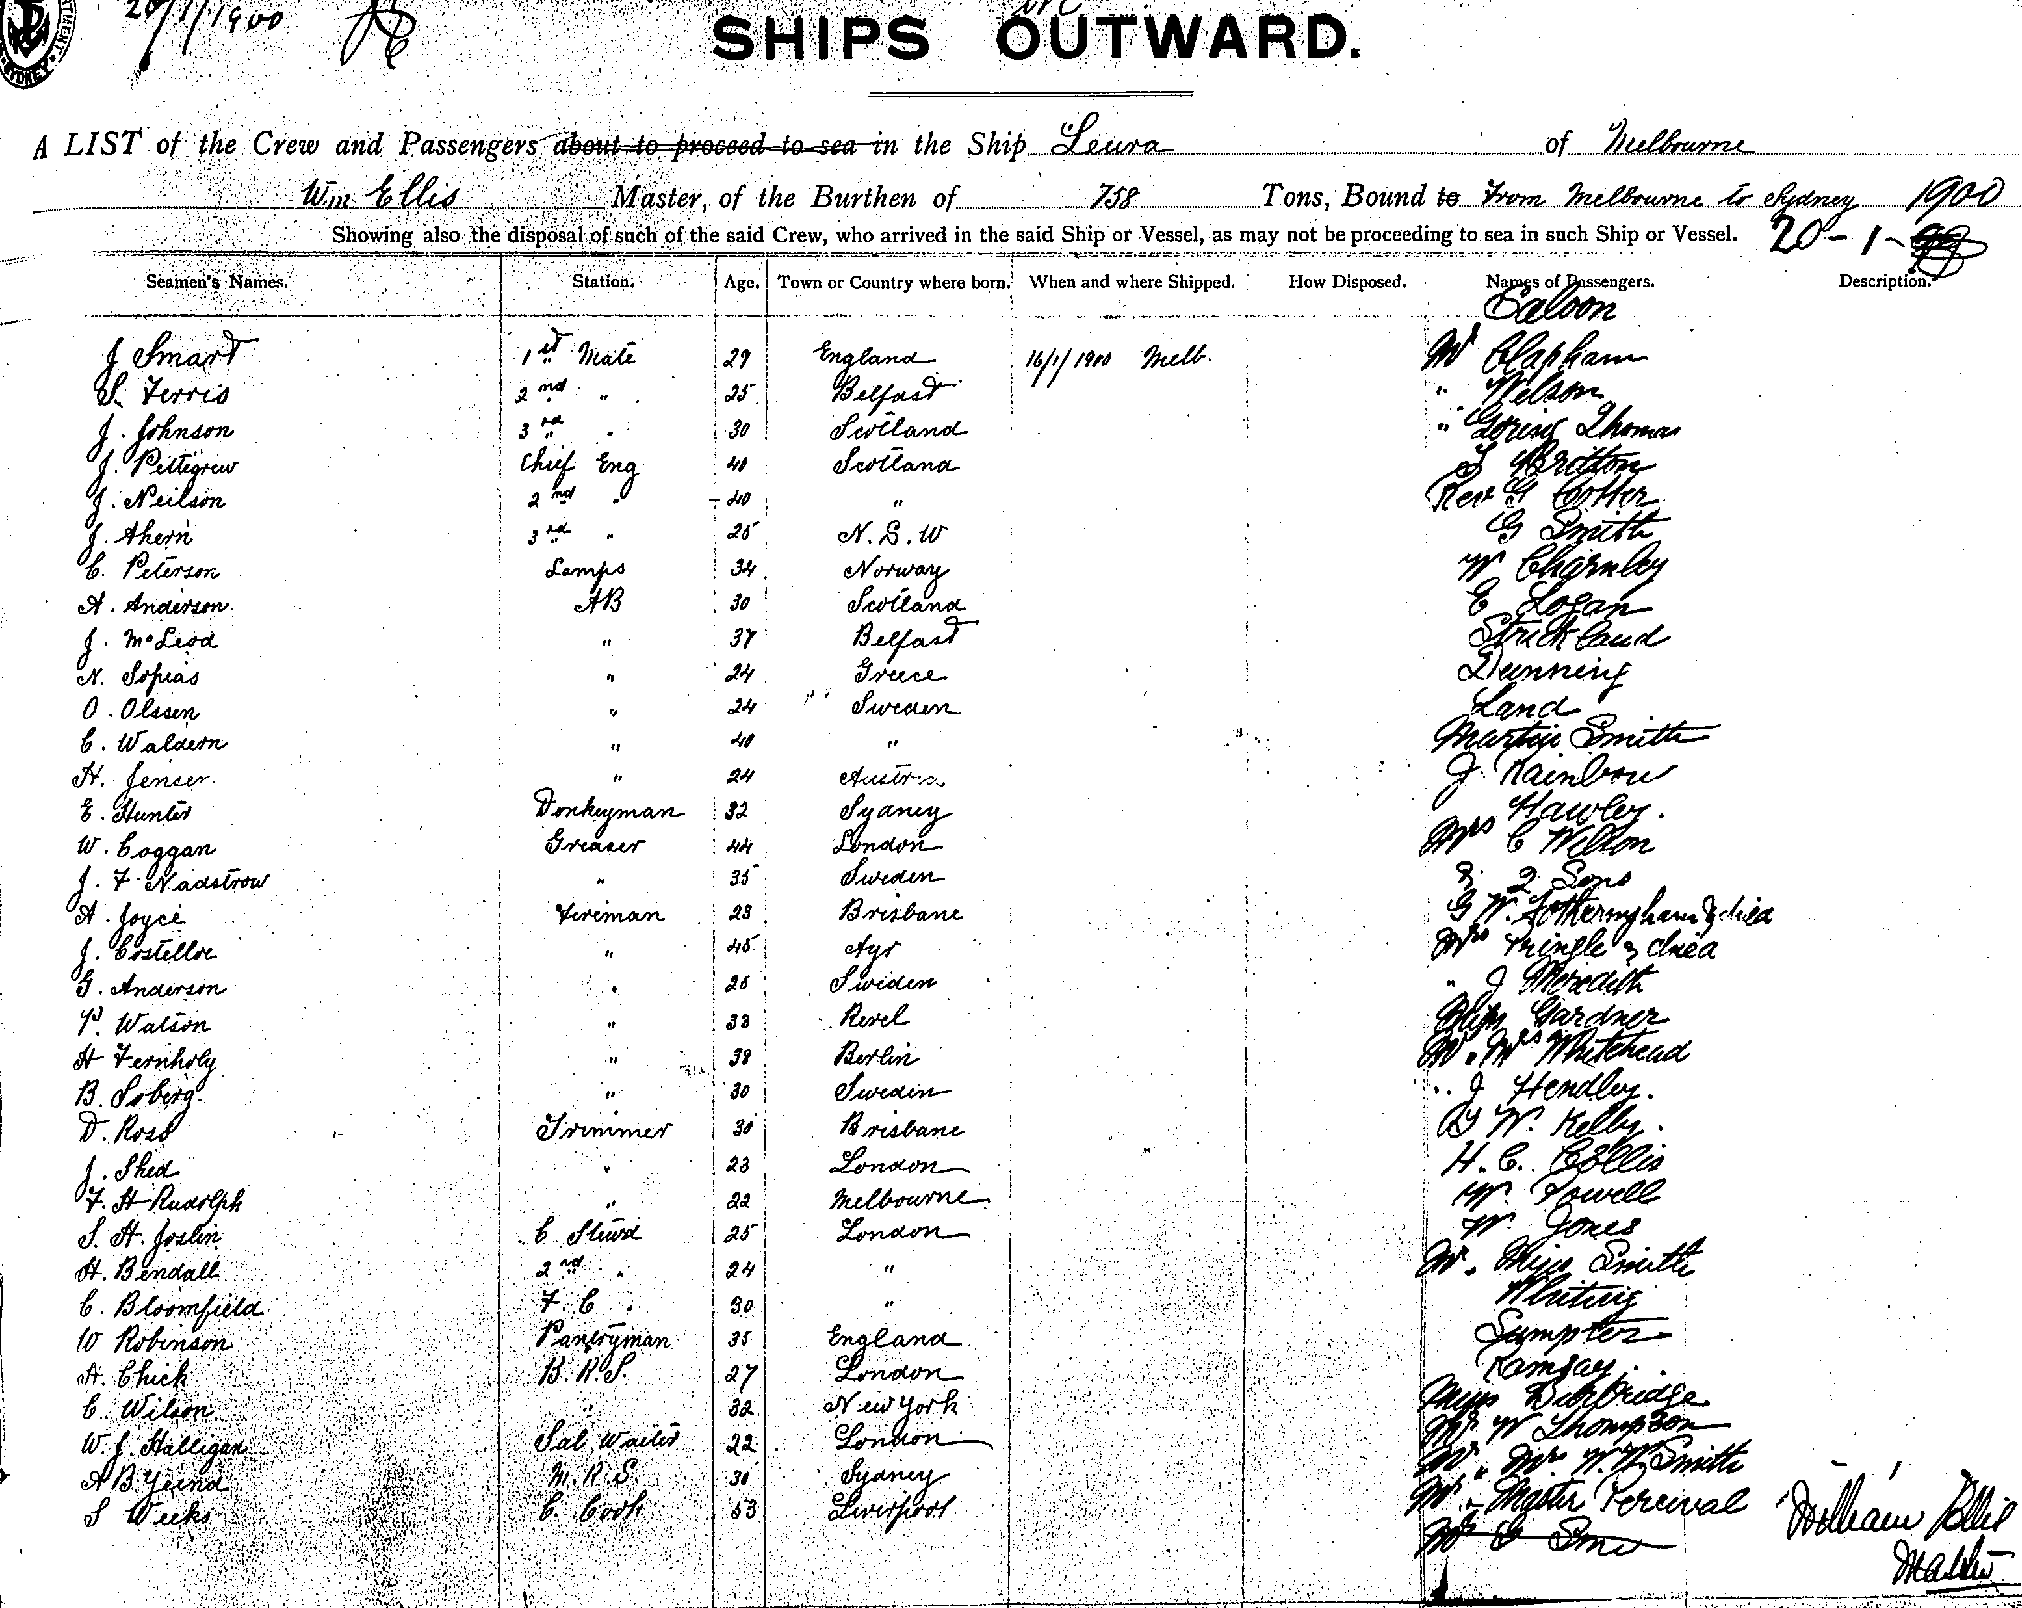 20/1/1900
SYDNEY
SHIPS OUTWARD.
A LIST of the Crew and Passengers about to proceed to sea in the Ship Leura of Melbourne
Wm Ellis Master, of the Burthen of 758 Tons, Bound to From Melbourne to Sydney 1900
Showing also the disposal of such of the said Crew, who arrived in the said Ship or Vessel, as may not be proceeding to sea in such Ship or Vessel. 20-1-
Seamen's Names. Station. Age. Town or Country where born. When and where Shipped. How Disposed. Names of Passengers. Description.
Saloon
J Smart 1st Mate 29 England 16/1/1900 Melb. Mr Clapham
S. Ferris 2nd " 25 Belfast " Wilson
J. Johnson 3rd " 30 Scotland " Goring Thomas
J. Pettigrew Chief Eng 40 Scotland S Bretton
J. Neilson 2nd " 40 " Rev G Cotter
J. Ahern 3rd " 25 N.S.W G Smith
C. Peterson Lamps 34 Norway W Charnley
A. Anderson AB 30 Scotland E Logan
J. McLeod " 37 Belfast Strickland
N. Sopias " 24 Greece Dunning
O. Olssen " 24 Sweden Land
C. Waldern " 40 " Martin Smith
H. Jenser " 24 Austria J. Rainbow
E. Hunter Donkeyman 32 Sydney Hawley.
W. Coggan Greaser 44 London Mrs C Wilson
J. F. Nadstrow " 35 Sweden & 2 Sons
A. Joyce Fireman 28 Brisbane G W. Fotheringham & child
J. Costelloe " 45 Ayr Mrs Pringle & child
G. Anderson " 25 Sweden " J Meredith
P. Watson " 33 Revel Miss Gardner
H Fernholy " 38 Berlin Mr. Mrs Whitehead
B. Soberg. " 30 Sweden .. J Hendley.
D. Ross Trimmer 30 Brisbane G W. Kelly.
J. Shed " 23 London H. C. Collis
F. H Rudolph " 22 Melbourne. W. Powell
S. H. Joslin C Stewd 25 London W Jones
H. Bendall 2nd " 24 " Mr. Miss Smith
C. Bloomfield F. C " 30 " Whiting
W Robinson Pantryman 35 England Sumpter
A. Chick B. R. S. 27 London Ramsay.
C. Wilson " 32 New York Miss
W. J. Halligan Sal Waiter 22 London Mr W Thompson
A B Yeend M. R. S. 30 Sydney Mr. Mrs W. W Smith
S Weeks C. Cook 53 Liverpool Mr. Master Percival
William Ellis
Master